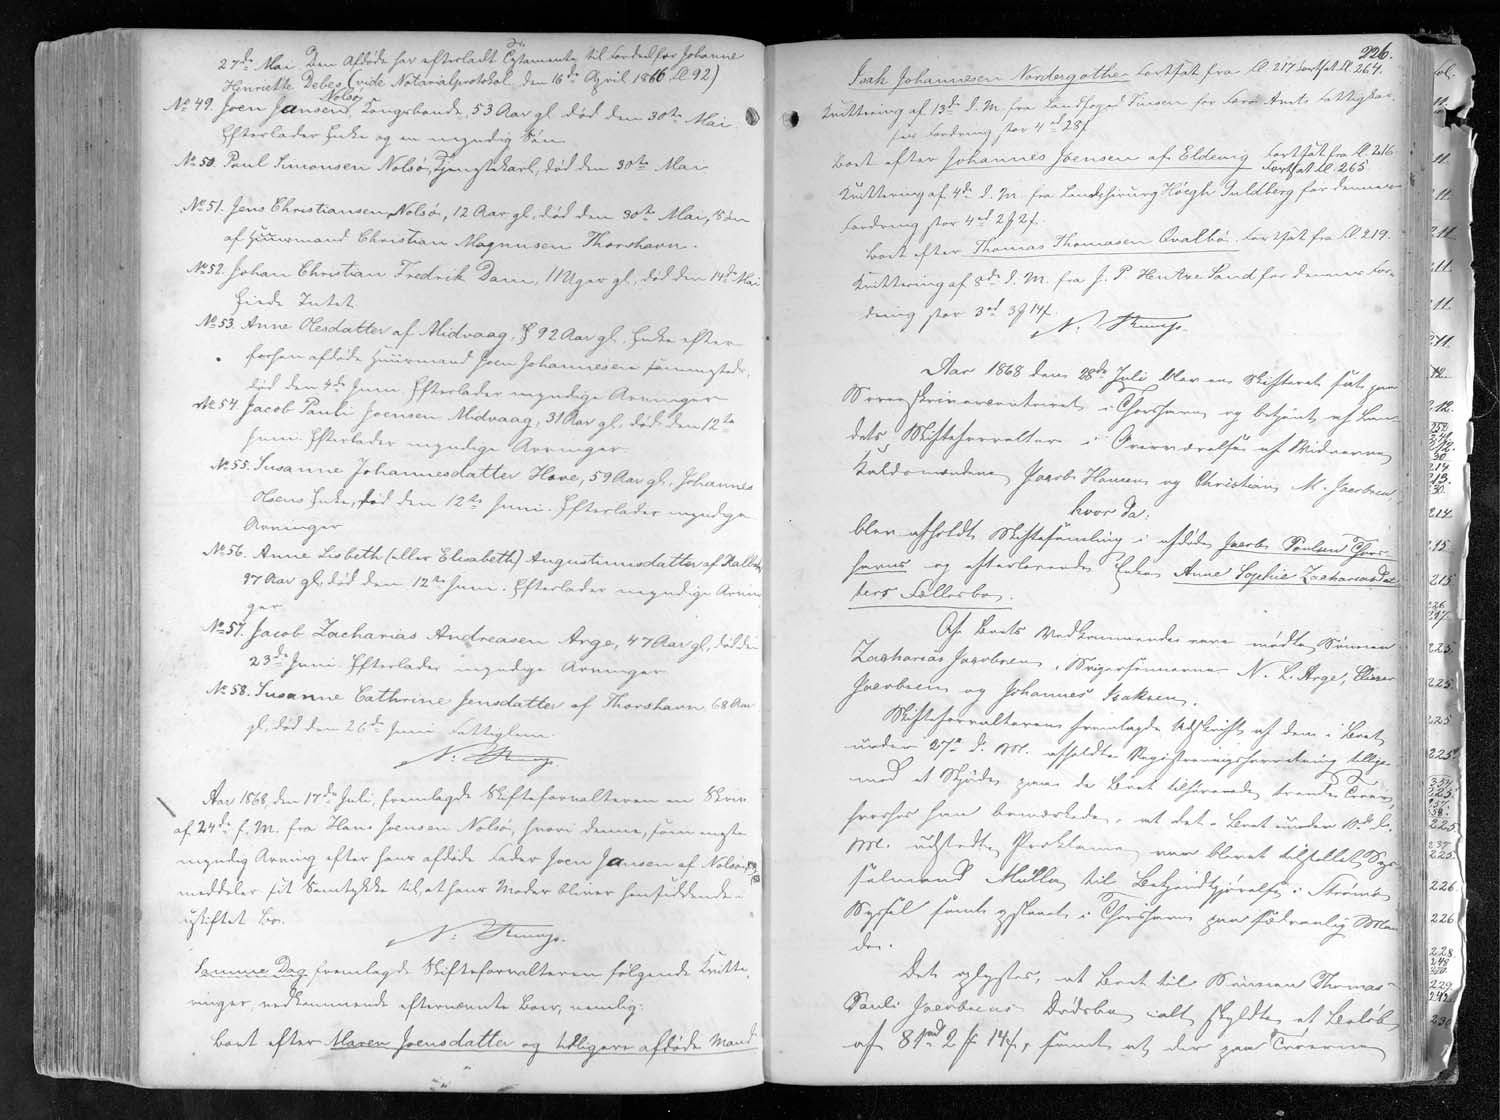 27de Mai. Den Afdøde har efterladt Testamente til Fordel for Johanne
Henriette Debes (vide Notarialprotokol den 16de April 1866 Fl. 92)
No 49. Joen Jansen Nolsø, Kongsbonde, 53 Aar gl. død den 30te Mai.
Efterlader Enke og en myndig Søn.
No 50. Poul Simonsen Nolsø, Tjenestekarl, død den 30te Mai
No 51. Jens Christiansen Nolsø, 12 Aar gl, død den 30te Mai, Søn
af Huusmand Christian Magnusen Thorshavn.
No 52. Johan Christian Fredrik Dam, 11 Uger gl, død den 14de Mai
Eiede Intet.
No 53. Anne Olesdatter af Midvaag, 92 Aar gl. Enke efter
forhen afdøde Huusmand Joen Johannesen sammesteds,
død den 4de Juni. Efterlader myndige Arvinger
No 54. Jacob Pauli Joensen Midvaag, 31 Aar gl, død den 12te
Juni. Efterlader myndige Arvinger.
No 55. Susanne Johannesdatter Hove, 59 Aar gl, Johannes
Olsens Enke, død den 12te Juni. Efterlader myndige
Arvinger
No 56. Anne Lisbeth (eller Elisabeth) Augustinusdatter af
97 Aar gl, død den 12te Juni. Efterlader myndige Arvin-
ger
No 57. Jacob Zacharias Andreasen Arge, 47 Aar gl, død den
23de Juni. Efterlader myndige Arvinger
No 58. Susanne Cathrine Jensdatter af Thorshavn, 68 Aar
gl, død den 26de Juni. Fattiglem.
Aar 1868, den 17de Juli, fremlagde Skifteforvalteren en Skriv.
af 24de f. M. fra Hans Joensen Nolsø, hvori denne, som eneste
myndig Arving efter hans afdøde Fader Joen Jansen af Nolsø,
meddeler sit Samtykke til, at hans Moder bliver hensiddende i
uskiftet Bo.
Samme Dag fremlagde Skifteforvalteren følgende Kvitte-
ringer, vedkommende efternævnte Boer, nemlig:
Boet efter Maren Joensdatter og tidligere afdøde Mand
226.
Isak Johannesen Nordergøthe. Fortsat fra Fl. 217. Fortsat Fl. 264.
Kvittering af 13de d. M. fra Landfoged Finsen for Færø Amts Fattigkas-
ses Fordring stor 4rd 28ß.
Boet efter Johannes Joensen af Eldevig Fortsat fra Fl. 216.
Fortsat Fl. 265.
Kvittering af 4de d. M. fra Landchirurg Høegh Guldberg for dennes
Fordring stor 4rd 2ß.
Boet efter Thomas Thomasen Qvalbø. Fortsat fra Fl. 219.
Kvittering af 8de d. M. fra J. P. Hentze Sand for dennes For-
dring stor 3rd 14ß.
Aar 1868 den 28de Juli blev en Skifteret sat paa
Sorenskrivercontoiret i Thorshavn og betjent af Lan-
dets Skifteforvalter i Overværelse af Vidnerne
Jacob Hansen og Christian M. Jacobsen,
hvor da:
blev afholdt Skiftesamling i afdøde Jacob Poulsen Thors-
havns og efterlevende Enke Anne Sophie Zachariasdat-
ters Fællesbo.
Af Boets Vedkommende vare mødte Sønnen
Zacharias Jacobsen, Svigersønnerne N. L. Arge,
Jacobsen og Johannes Isaksen.
Skifteforvalteren fremlagde Udskrift af den i Boet
under 27de d. M. afholdte Registreringsforretning tillige-
med et Skjøde paa de Boet tilhørende
hvorhos han bemærkede, at det i Boet under
M. udstedte Proklama var blevet tilstillet Sys-
selmand Müller til Bekjendtgjørelse i Strømø
Syssel samt oplæst i Thorshavn paa sædvanlig Maa-
de.
Det oplystes, at Boet til Sønnen Thomas
Pauli Jacobsens Dødsbo ialt skyldte et Beløb
af 81rd 2 14ß, samt at der paa